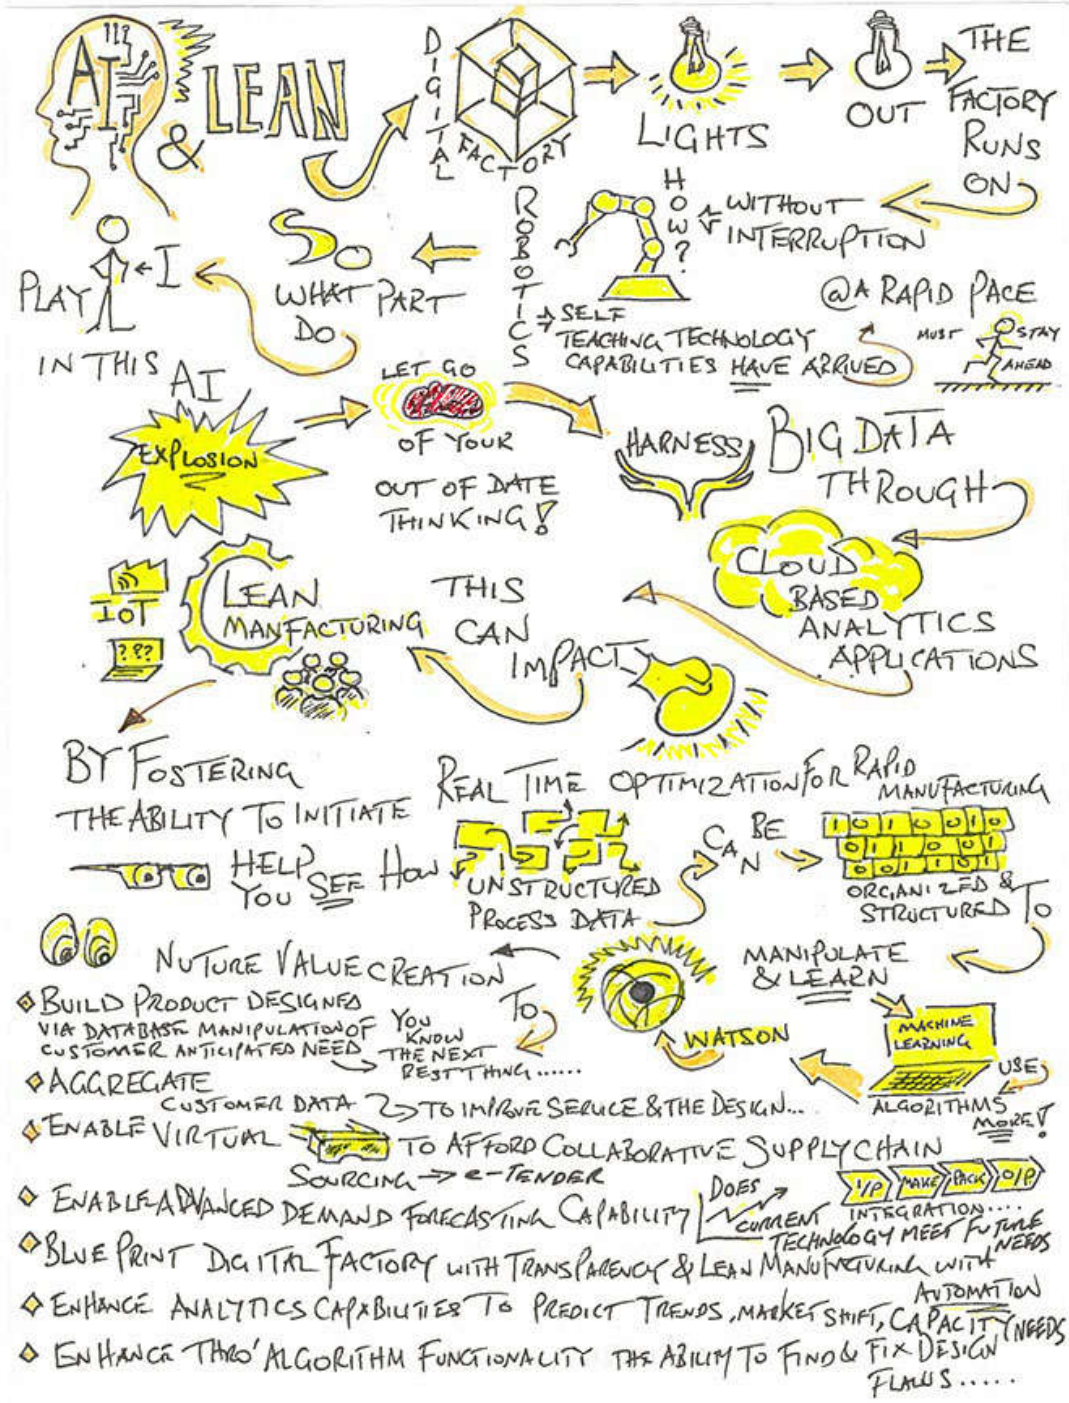 AI
& LEAN
DIGITAL
FACTORY
LIGHTS
OUT
THE
FACTORY
RUNS
ON
WITHOUT
INTERRUPTION
HOW?
ROBOTICS
SELF
TEACHING TECHNOLOGY
CAPABILITIES HAVE ARRIVED
@A RAPID PACE
MUST STAY
AHEAD
SO
WHAT PART
DO
I
PLAY
IN THIS
AI
EXPLOSION
LET GO
OF YOUR
OUT OF DATE
THINKING!
HARNESS
BIG DATA
THROUGH
CLOUD
BASED
ANALYTICS
APPLICATIONS
THIS
CAN
IMPACT
LEAN
MANFACTURING
IOT
???
BY FOSTERING
THE ABILITY TO INITIATE
REAL TIME OPTIMIZATION FOR RAPID
MANUFACTURING
HELP
YOU SEE HOW
UNSTRUCTURED
PROCESS DATA
CAN
BE
1010010
011001
001101
ORGANIZED &
STRUCTURED TO
MANIPULATE
& LEARN
MACHINE
LEARNING
USE
ALGORITHMS
MORE!
WATSON
TO
NUTURE VALUE CREATION
BUILD PRODUCT DESIGNED
VIA DATABASE MANIPULATION OF
CUSTOMER ANTICIPATED NEED
YOU
KNOW
THE NEXT
BEST THING......
AGGREGATE
CUSTOMER DATA TO IMPROVE SERVICE & THE DESIGN...
ENABLE VIRTUAL TO AFFORD COLLABORATIVE SUPPLY CHAIN
SOURCING → e-TENDER
I/P MAKE PACK O/P
INTEGRATION....
ENABLE ADVANCED DEMAND FORECASTING CAPABILITY
DOES
CURRENT
TECHNOLOGY MEET FUTURE
NEEDS
BLUE PRINT DIGITAL FACTORY WITH TRANSPARENCY & LEAN MANUFACTURING WITH
AUTOMATION
ENHANCE ANALYTICS CAPABILITIES TO PREDICT TRENDS, MARKET SHIFT, CAPACITY NEEDS
ENHANCE THRO' ALGORITHM FUNCTIONALITY THE ABILITY TO FIND & FIX DESIGN
FLAWS.....